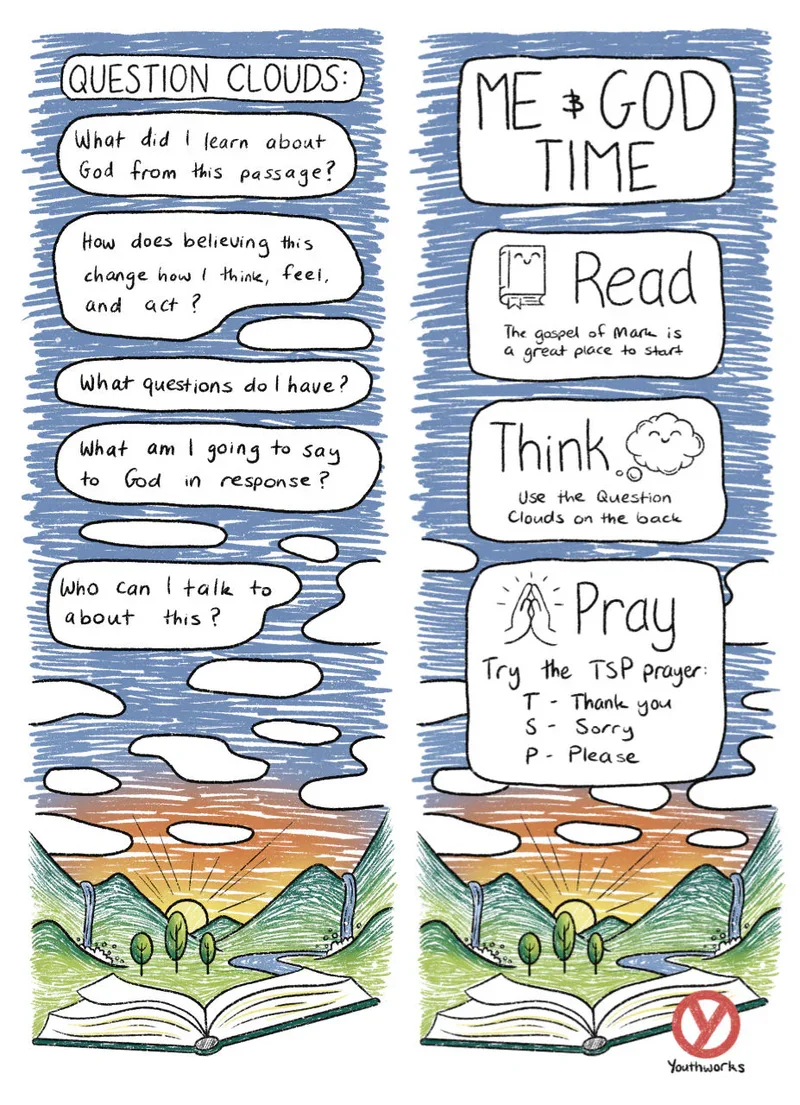 QUESTION CLOUDS:
What did I learn about
God from this passage?
How does believing this
change how I think, feel,
and act?
What questions do I have?
What am I going to say
to God in response?
Who can I talk to
about this?
ME & GOD
TIME
Read
The gospel of Mark is
a great place to start
Think
Use the Question
Clouds on the back
Pray
Try the TSP prayer:
T - Thank you
S - Sorry
P - Please
Y
Youthworks